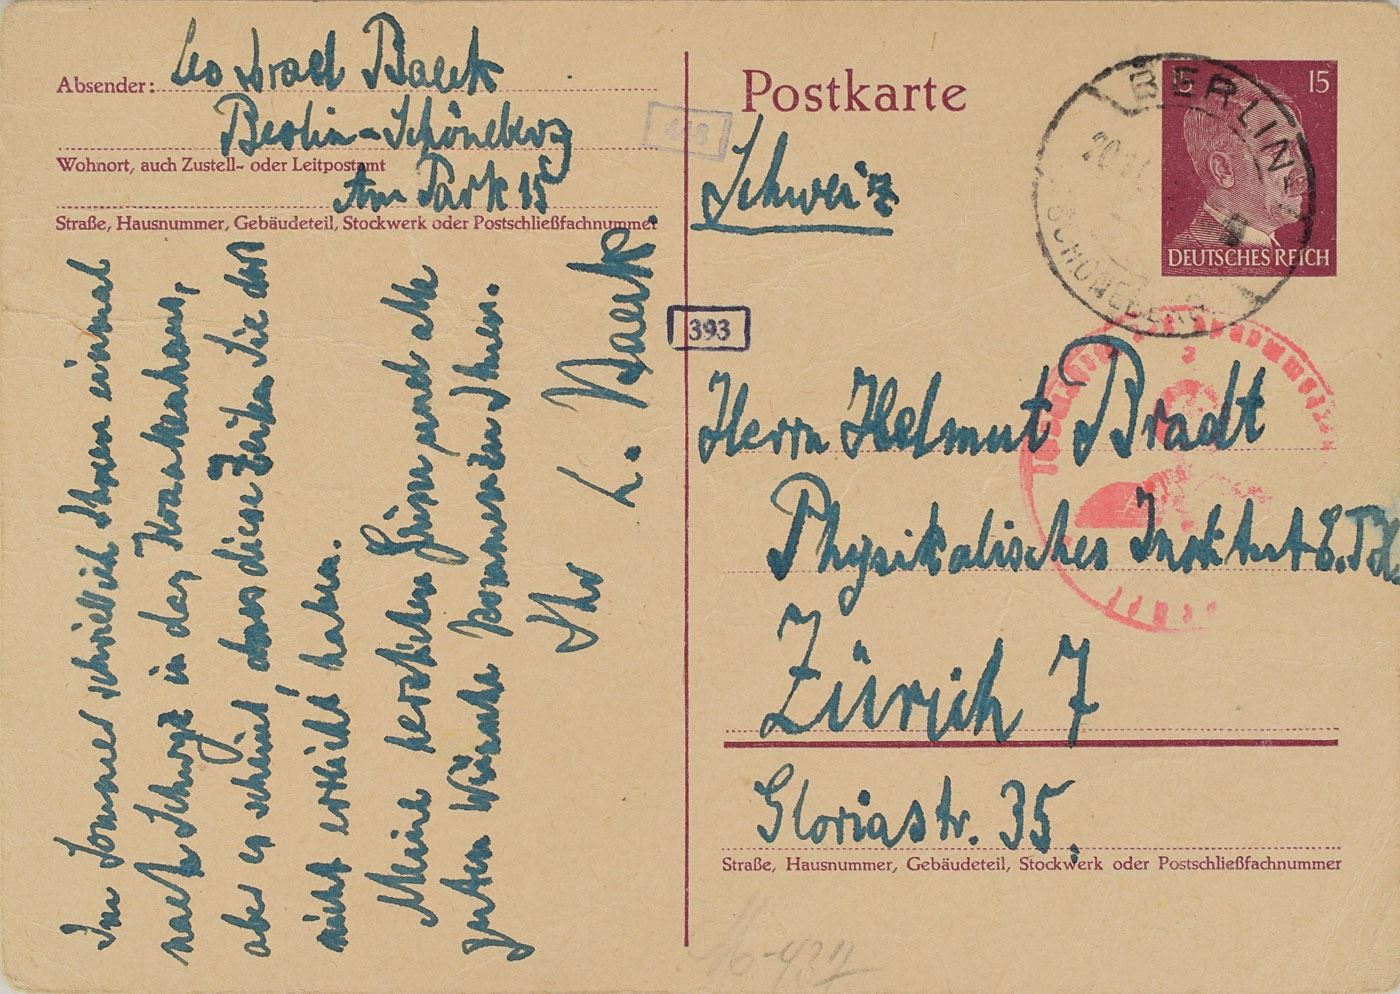 Absender: Leo Israel Baeck
Berlin-Schöneberg
Wohnort, auch Zustell- oder Leitpostamt
Am Park 15
Straße, Hausnummer, Gebäudeteil, Stockwerk oder Postschließfachnummer
Im Sommer schrieb ich Ihnen einmal
nach Schwyz in das Krankenhaus,
aber es scheint, dass diese Zeilen Sie dort
nicht erreicht haben.
Meine herzlichen Grüsse und alle
guten Wünsche kommen zu Ihnen.
Ihr L. Baeck
448
393
Postkarte
Schweiz
15
DEUTSCHES REICH
BERLIN-
SCHÖNEBERG
Herrn Helmut Bradt
Physikalisches Institut E.T.H.
Zürich 7
Gloriastr. 35.
Straße, Hausnummer, Gebäudeteil, Stockwerk oder Postschließfachnummer